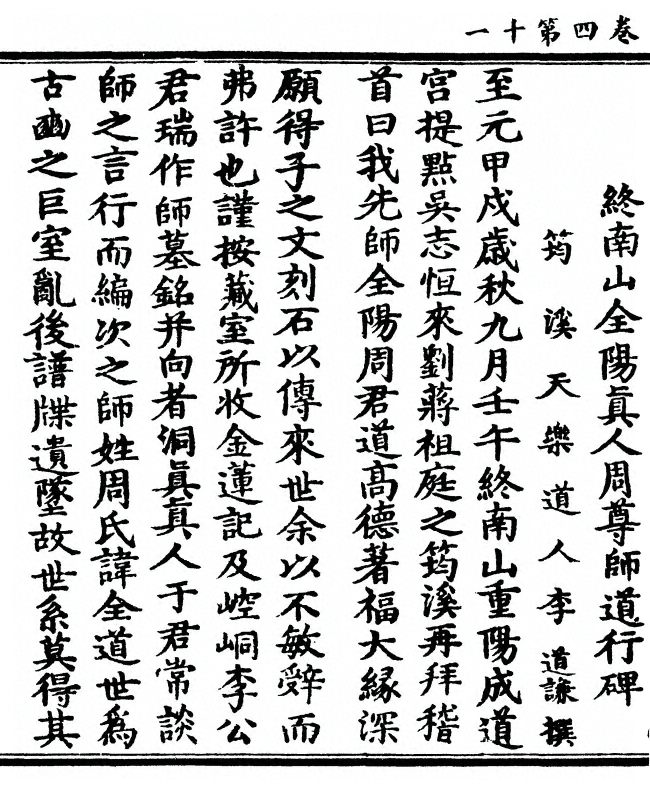 卷四第十一
終南山全陽眞人周尊師道行碑
筠溪天樂道人李道謙撰
至元甲戌歲秋九月壬午終南山重陽成道
宮提點吳志恒來劉蔣祖庭之筠溪再拜稽
首曰我先師全陽周君道高德著福大緣深
願得子之文刻石以傳來世余以不敏辭而
弗許也謹按藏室所收金蓮記及崆峒李公
君瑞作師墓銘并向者洞眞眞人于君常談
師之言行而編次之師姓周氏諱全道世爲
古豳之巨室亂後譜牒遺墜故世系莫得其